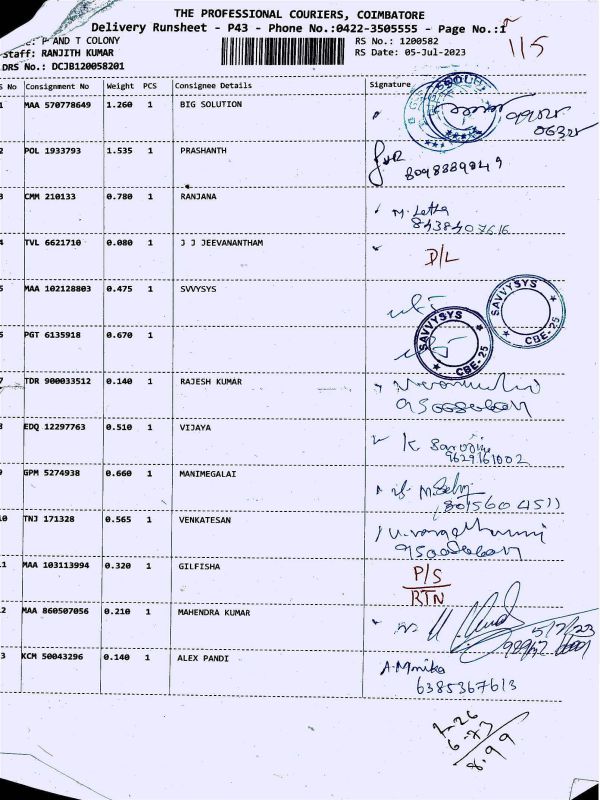 THE PROFESSIONAL COURIERS, COIMBATORE
Delivery Runsheet - P43 - Phone No.:0422-3505555 - Page No.:1
P AND T COLONY RS No.: 1200582
Staff: RANJITH KUMAR RS Date: 05-Jul-2023
DRS No.: DCJB120058201
115
S No Consignment No Weight PCS Consignee Details Signature
1 MAA 570778649 1.260 1 BIG SOLUTION
2 POL 1933793 1.535 1 PRASHANTH
8098889849
3 CMM 210133 0.780 1 RANJANA
M. Latha
8438407616
4 TVL 6621710 0.080 1 J J JEEVANANTHAM
D/L
5 MAA 102128803 0.475 1 SVVYSYS
SAVVYSYS CBE-25
6 PGT 6135918 0.670 1
SAVVYSYS CBE-25
7 TDR 900033512 0.140 1 RAJESH KUMAR
8 EDQ 12297763 0.510 1 VIJAYA
K Sarojini
9629161002
9 GPM 5274938 0.660 1 MANIMEGALAI
8015604511
10 TNJ 171328 0.565 1 VENKATESAN
11 MAA 103113994 0.320 1 GILFISHA
P/S
RTN
12 MAA 860507056 0.210 1 MAHENDRA KUMAR
5/7/23
13 KCM 50043296 0.140 1 ALEX PANDI
A. Monika
6385367613
1.26
6.73
8.99